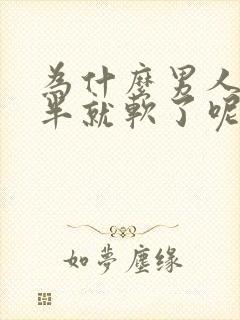 為什麼男人
半就軟了呢
如夢塵缘